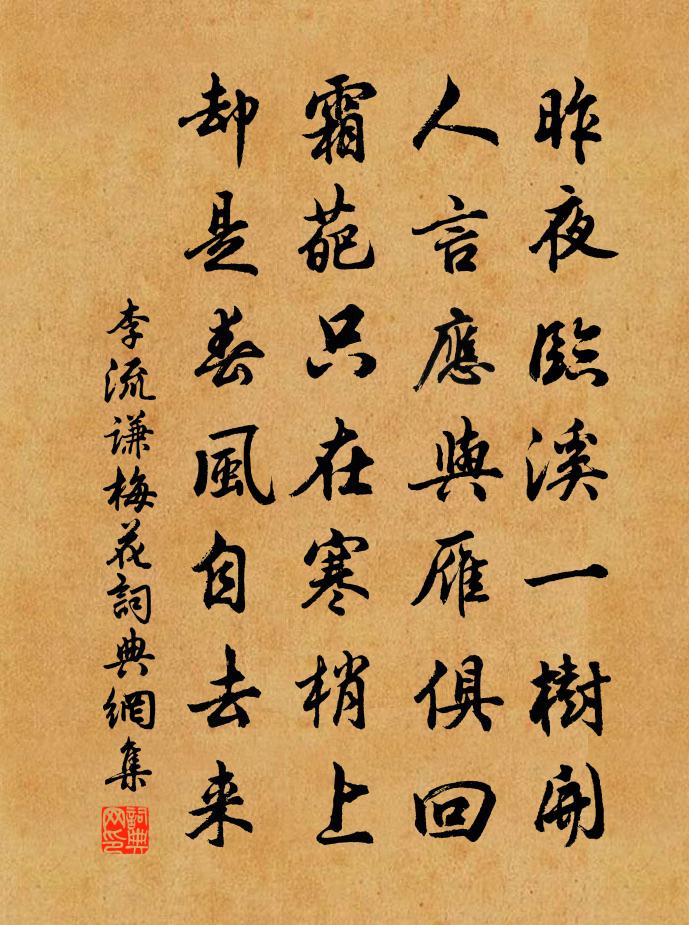 昨夜臨溪一樹開
人言應與雁俱回
霜葩只在寒梢上
却是春風自去来
李流谦梅花詞典網集
詞典网印